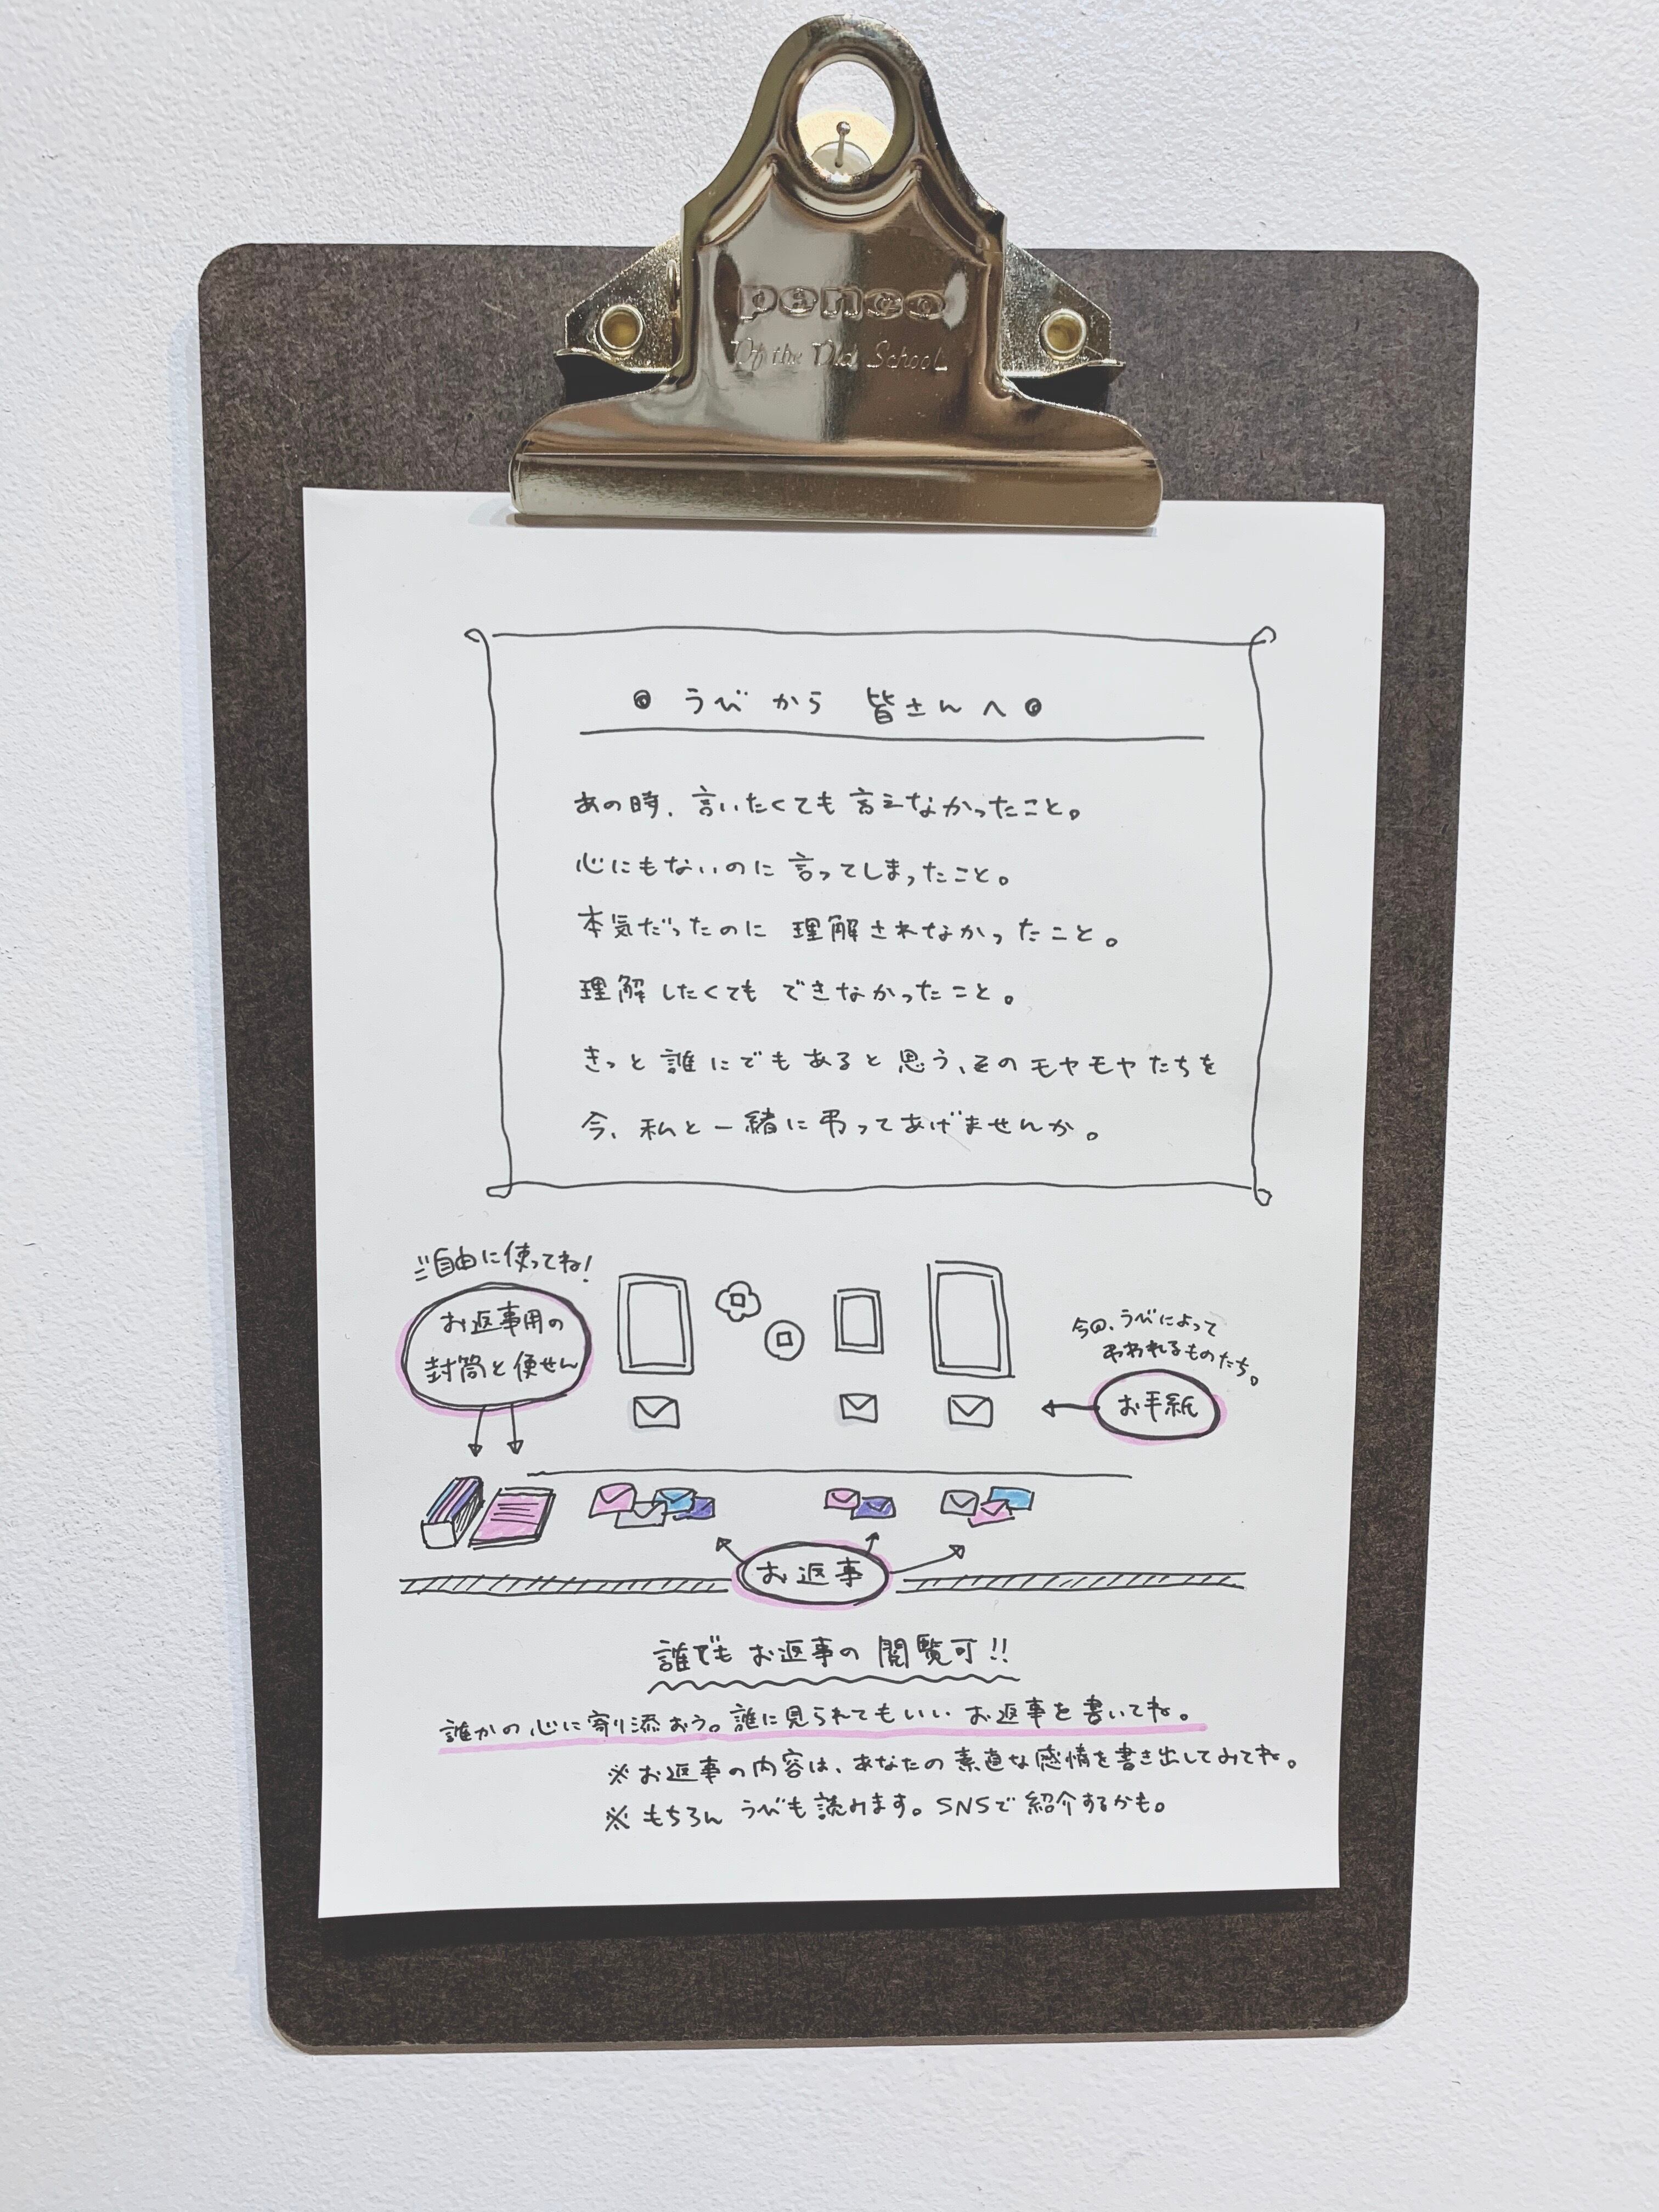 penco
Of the Old School
◎ うびから 皆さんへ ◎
あの時、言いたくても言えなかったこと。
心にもないのに言ってしまったこと。
本気だったのに 理解されなかったこと。
理解したくても できなかったこと。
きっと誰にでもあると思う、そのモヤモヤたちを
今、私と一緒に弔ってあげませんか。
ご自由に使ってね!
お返事用の
封筒と便せん
今回、うびによって
弔われるものたち。
お手紙
お返事
誰でもお返事の閲覧可!!
誰かの心に寄り添おう。誰に見られてもいいお返事を書いてね。
※お返事の内容は、あなたの素直な感情を書き出してみてね。
※もちろん うびも読みます。SNSで紹介するかも。